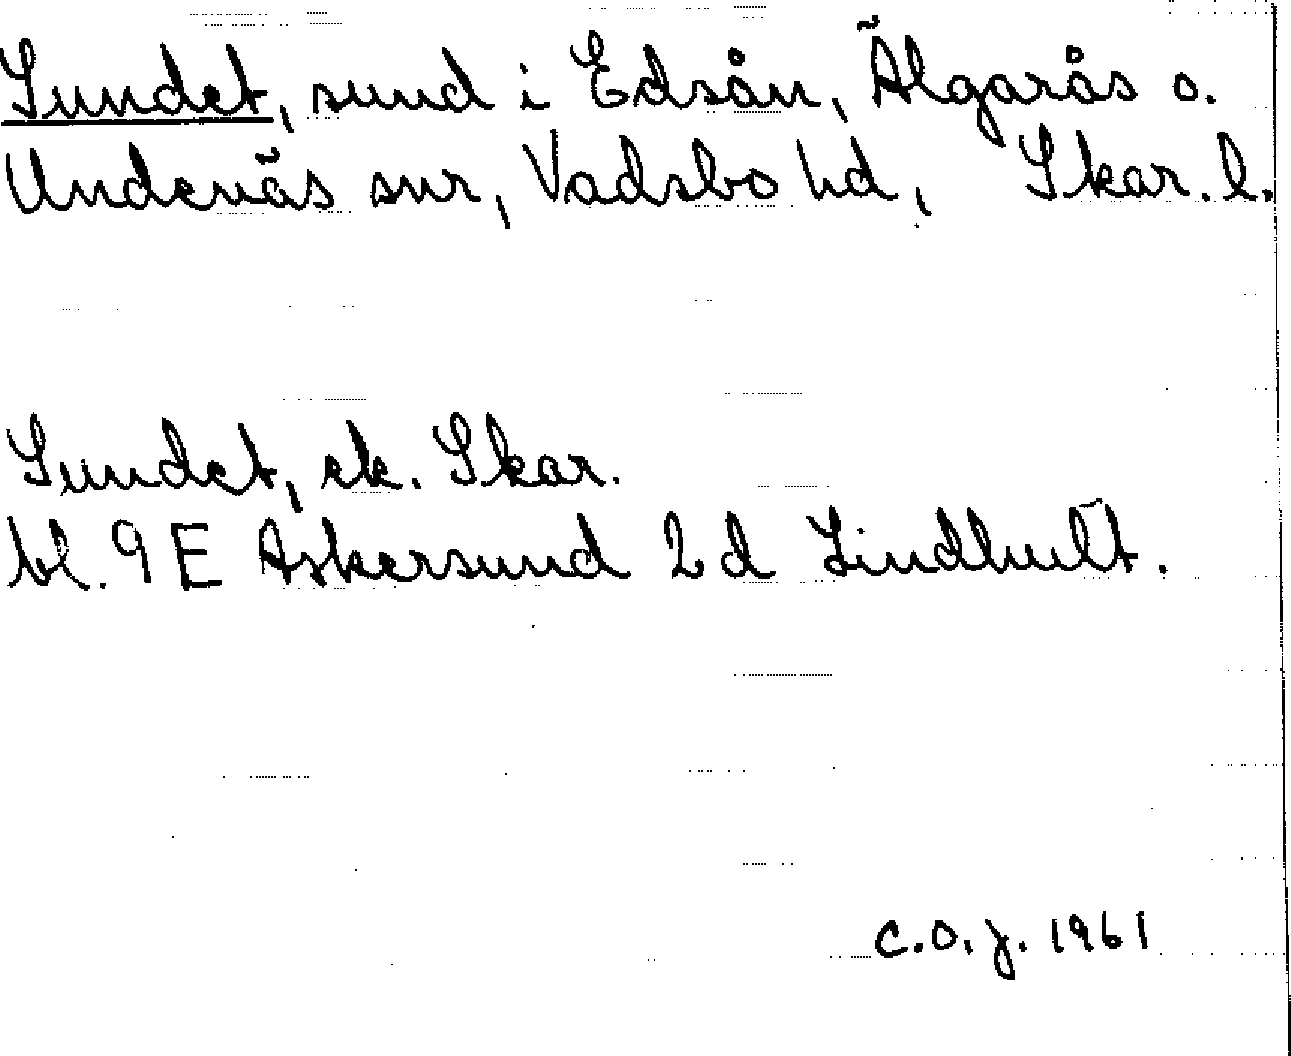 Sundet, sund i Edsån, Älgarås o.
Undenäs snr, Vadsbo hd, Skar. l.
Sundet, ek. Skar.
bl. 9 E Askersund 2 d Lindhult.
C.O.J. 1961